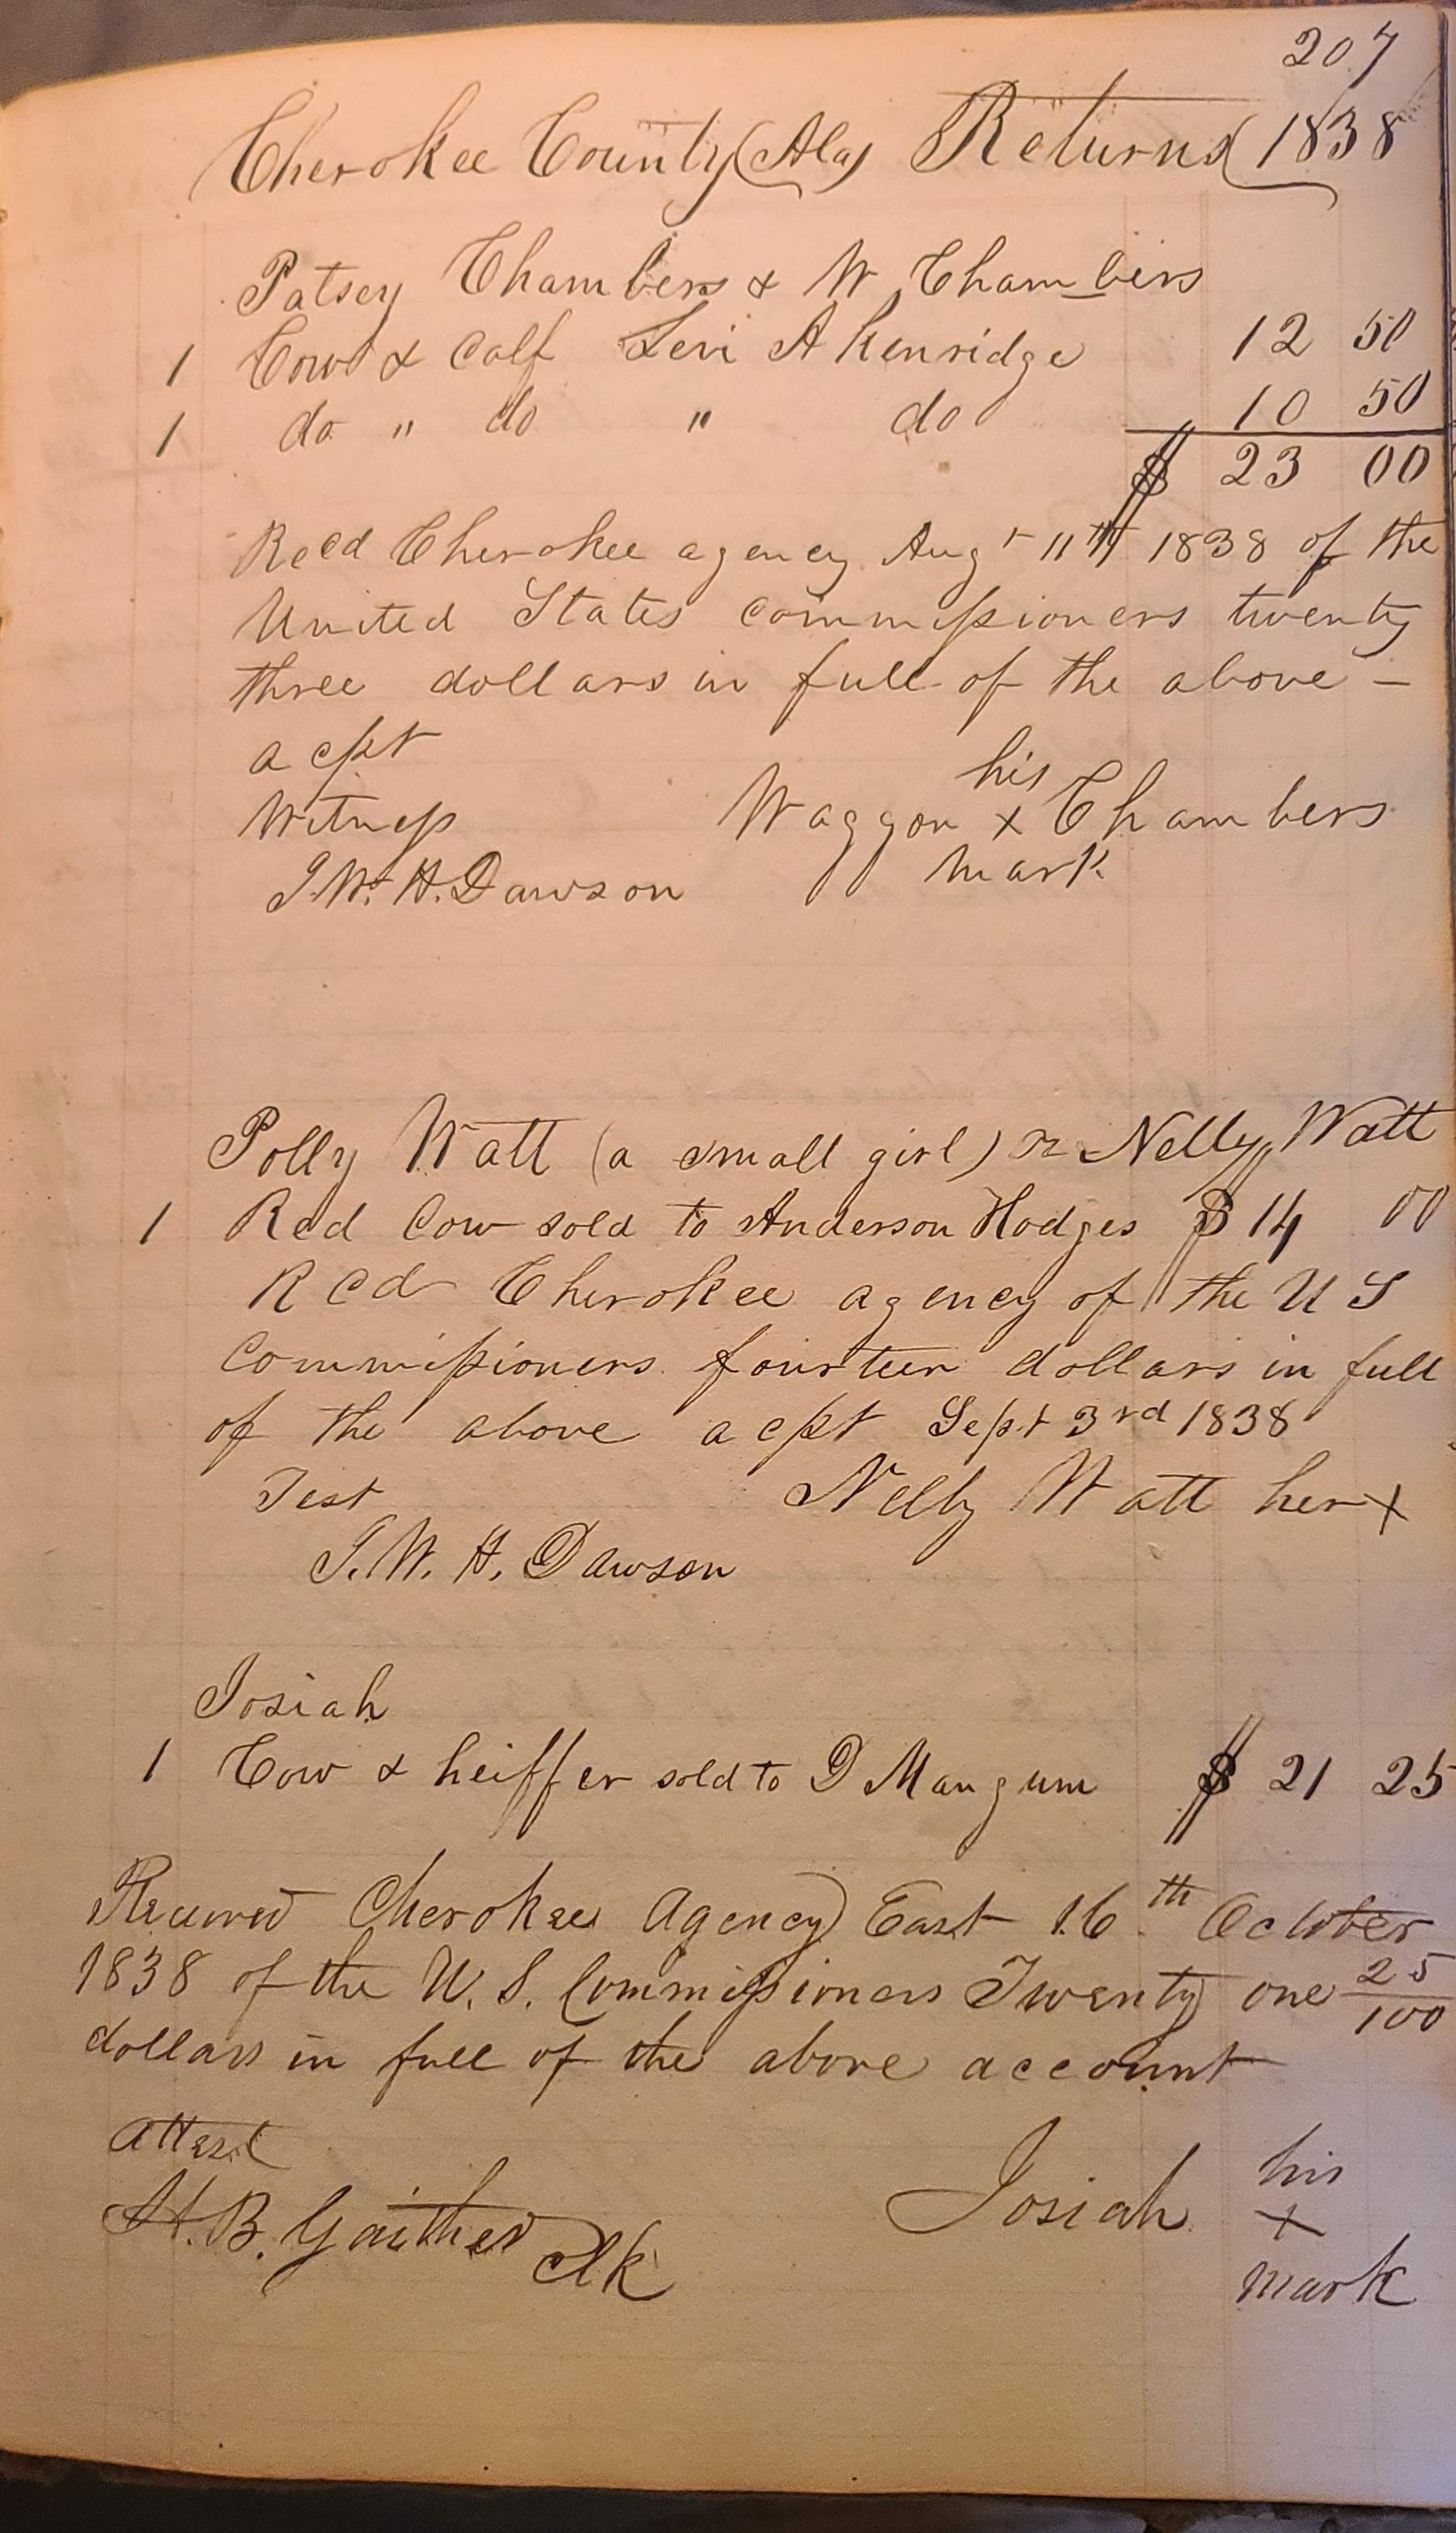 207
Cherokee County (Ala) Returns 1838
Patsey Chambers & W Chambers
1 Cow & Calf Levi A Kenridge 12 50
1 do " do " do 10 50
$ 23 00
Recd Cherokee agency Augt 11th 1838 of the
United States commissioners twenty
three dollars in full of the above -
acpt
his
Witness Waggon x Chambers
J. W. H. Dawson mark
Polly Watt (a small girl) Nelly Watt
1 Red Cow sold to Anderson Hodges $ 14 00
Rcd Cherokee agency of the U S
Commissioners fourteen dollars in full
of the above acpt Sept 3rd 1838
Test Nelly Watt her x
J. W. H. Dawson
Josiah
1 Cow & heiffer sold to D Mangum $ 21 25
Received Cherokee Agency East 16th October
1838 of the U. S. Commissioners Twenty one 25/100
dollars in full of the above account
attest his
H. B. Gaither Clk Josiah x
mark